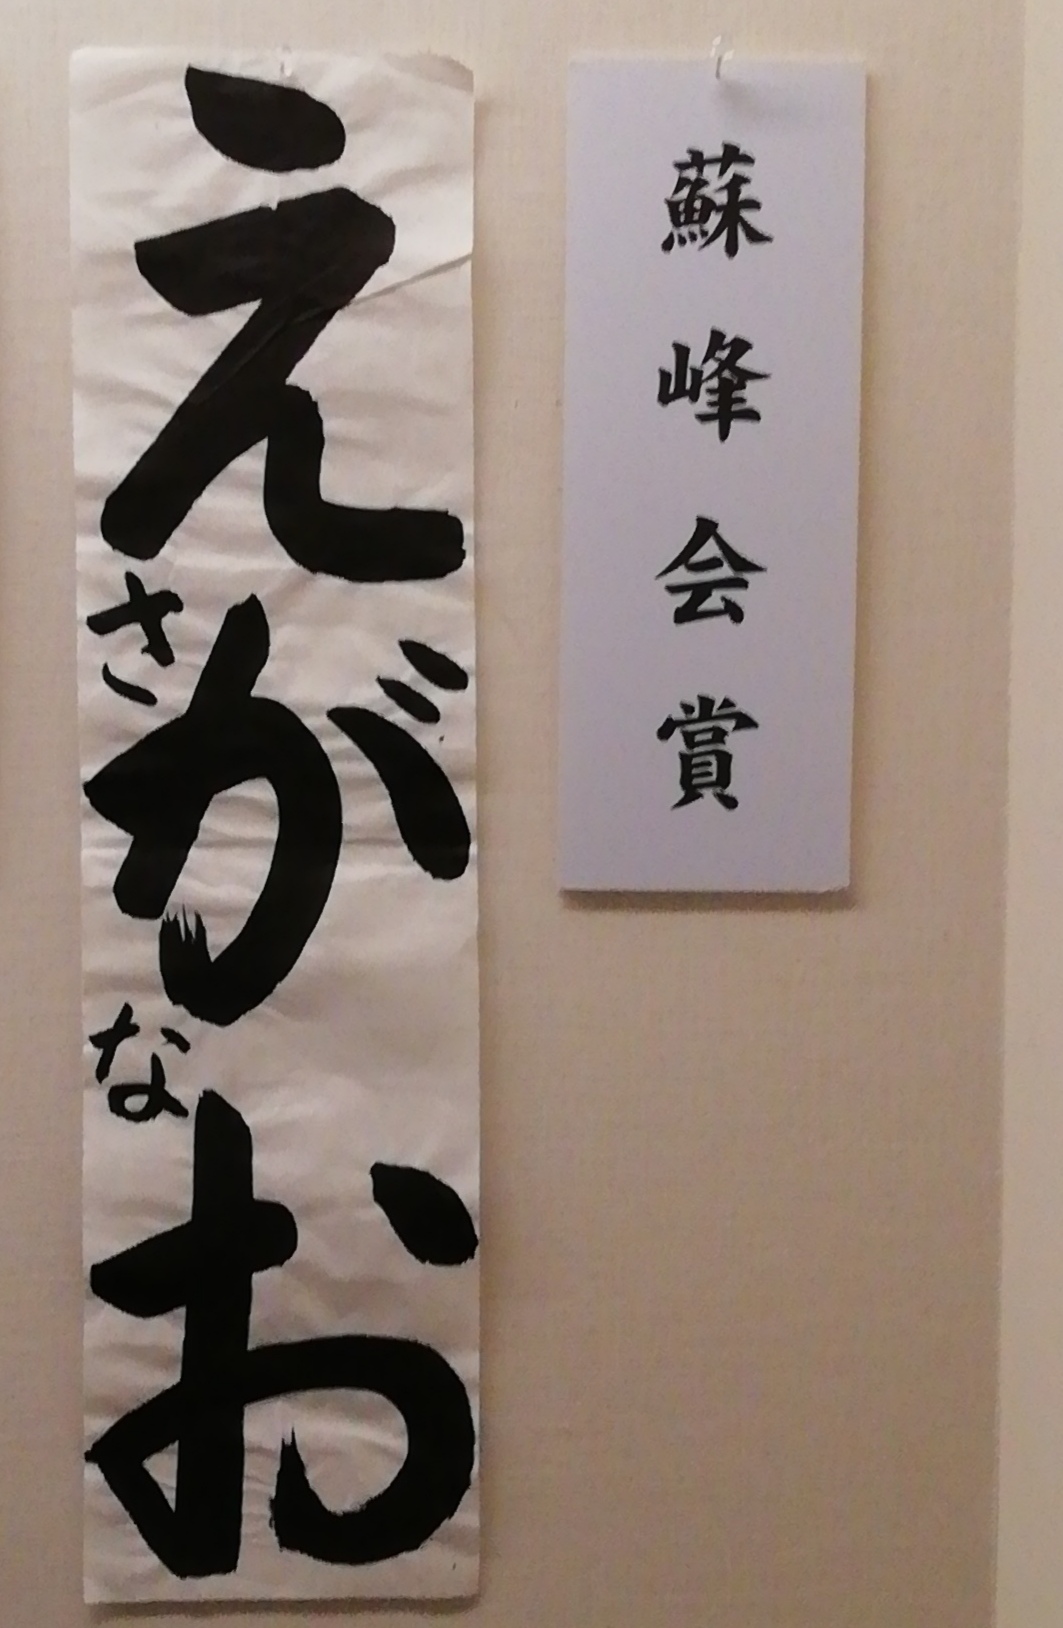 蘇峰会賞
えがお
さな